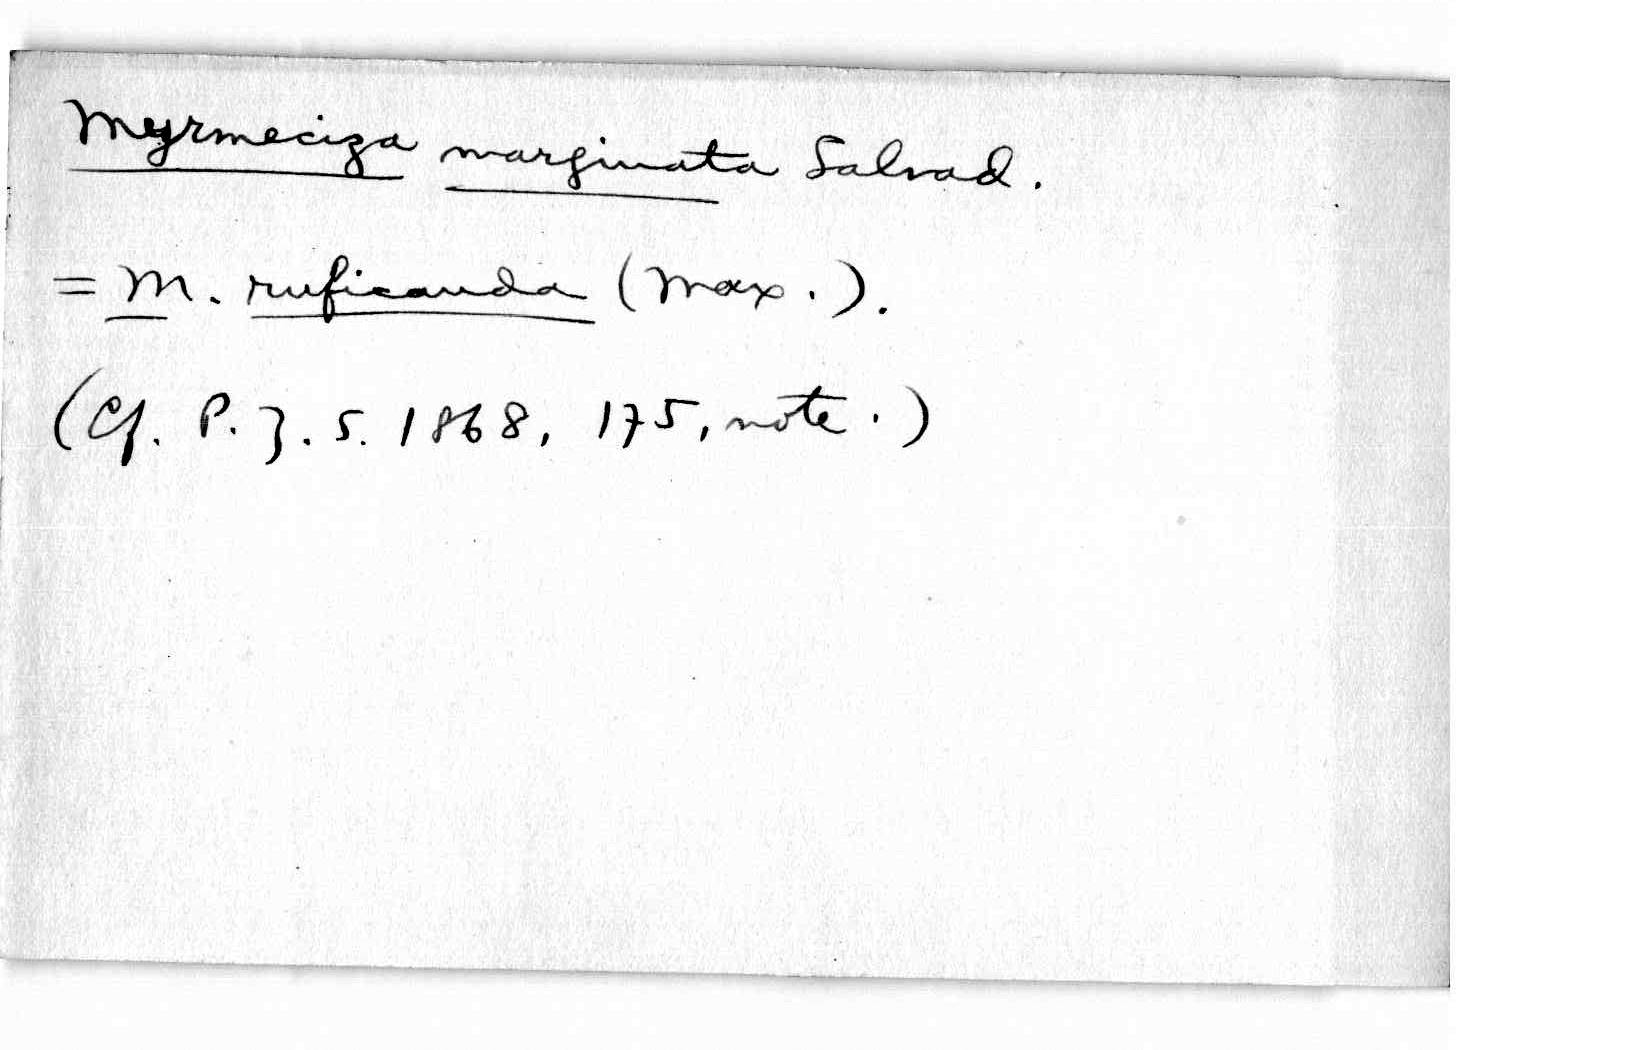 Myrmeciza marginata Salvad.
= M. ruficauda (Max.).
(Cf. P.Z.S. 1868, 175, note.)